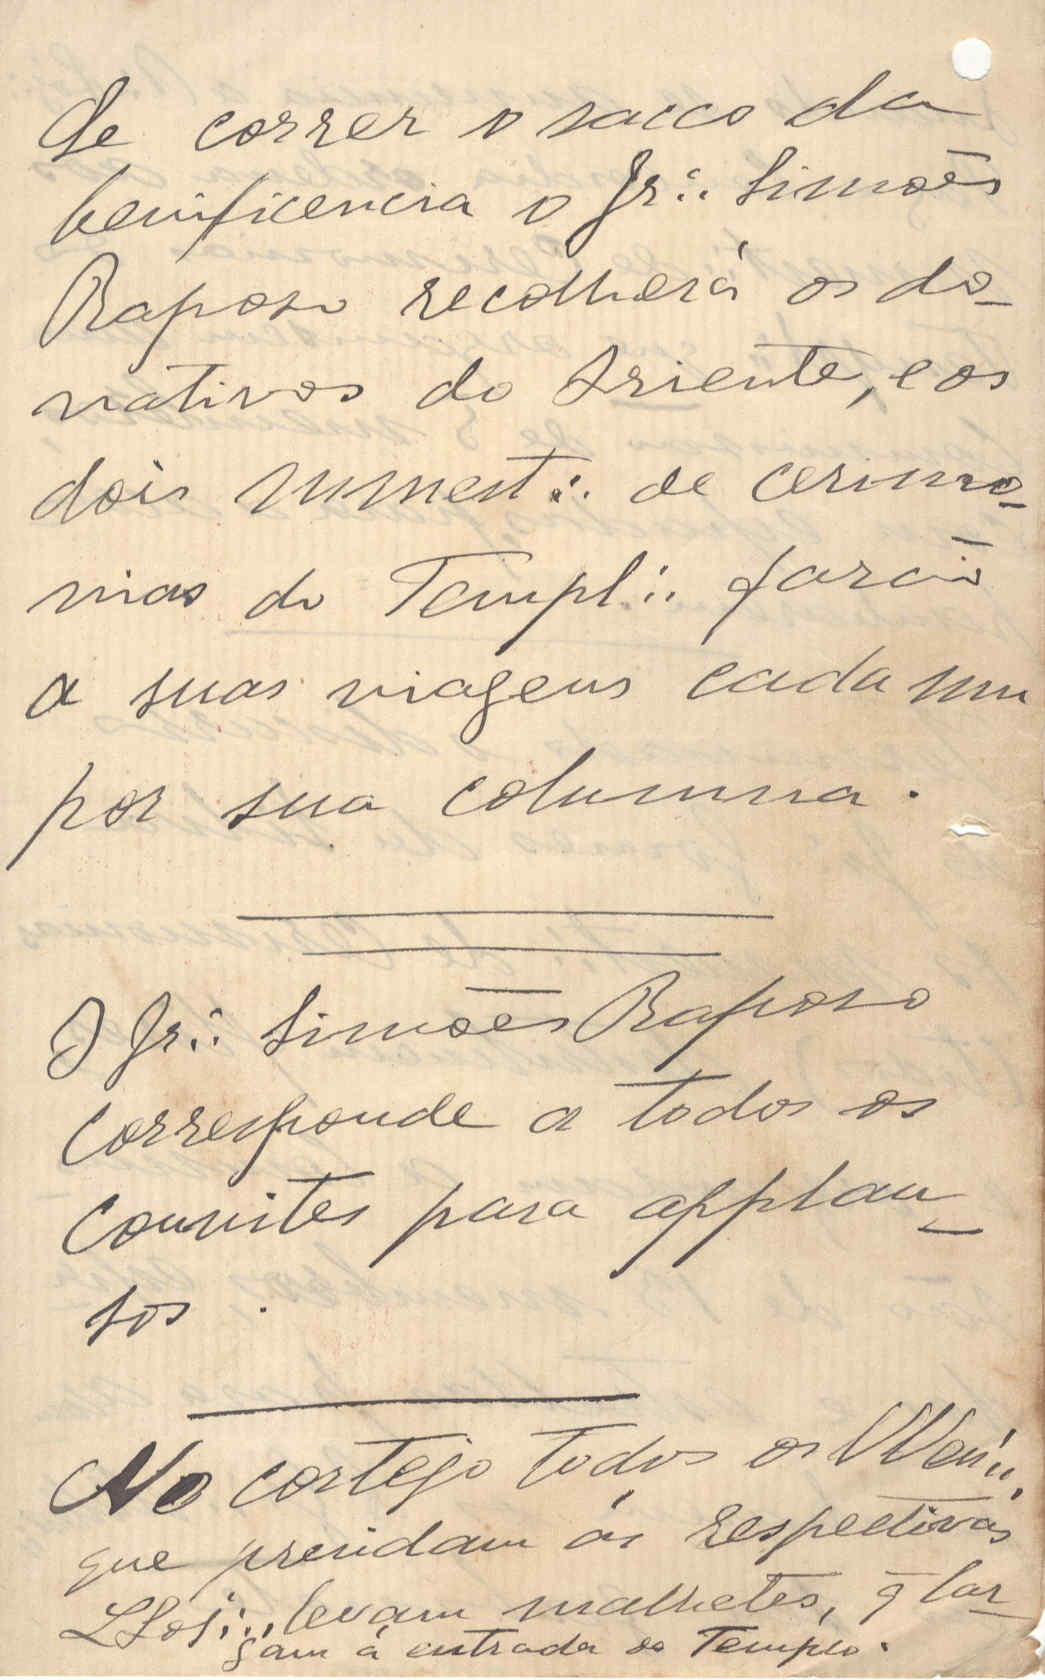 Se correr o sacco da
benificencia o Ir∴ Simões
Raposo recolherá os do-
nativos do Oriente, e os
dois mmest∴ de cerimo-
nias do Templ∴ farão
a suas viagens cada um
por sua columna.
O Ir∴ Simões Raposo
corresponde a todos os
convites para applau-
sos.
No cortejo todos os VVen∴
que presidam ás respectivas
LLoj∴, levam malhetes, q̃ lar-
gam á entrada do Templo.